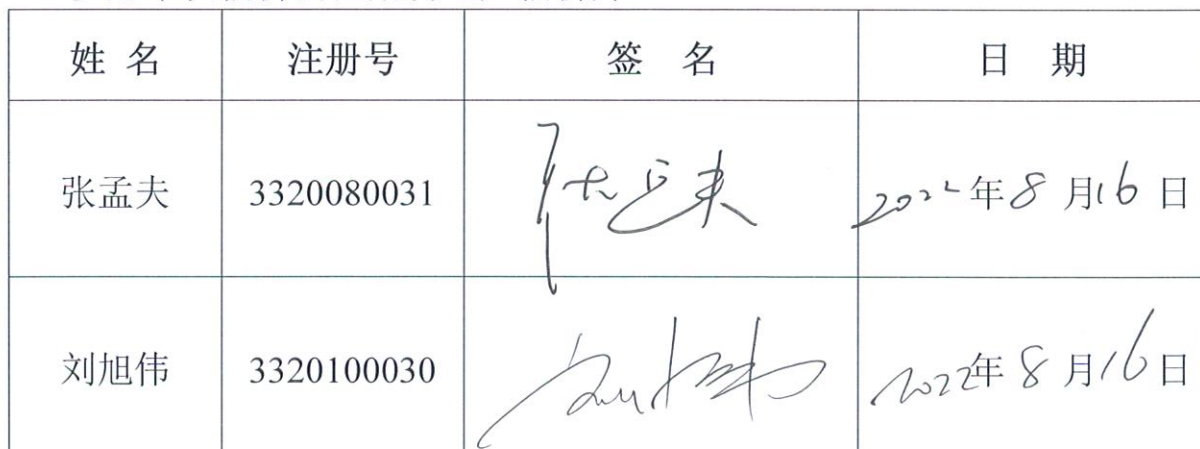 姓 名 注册号 签 名 日 期
张孟夫 3320080031 张孟夫 2022年8月16日
刘旭伟 3320100030 刘旭伟 2022年8月16日